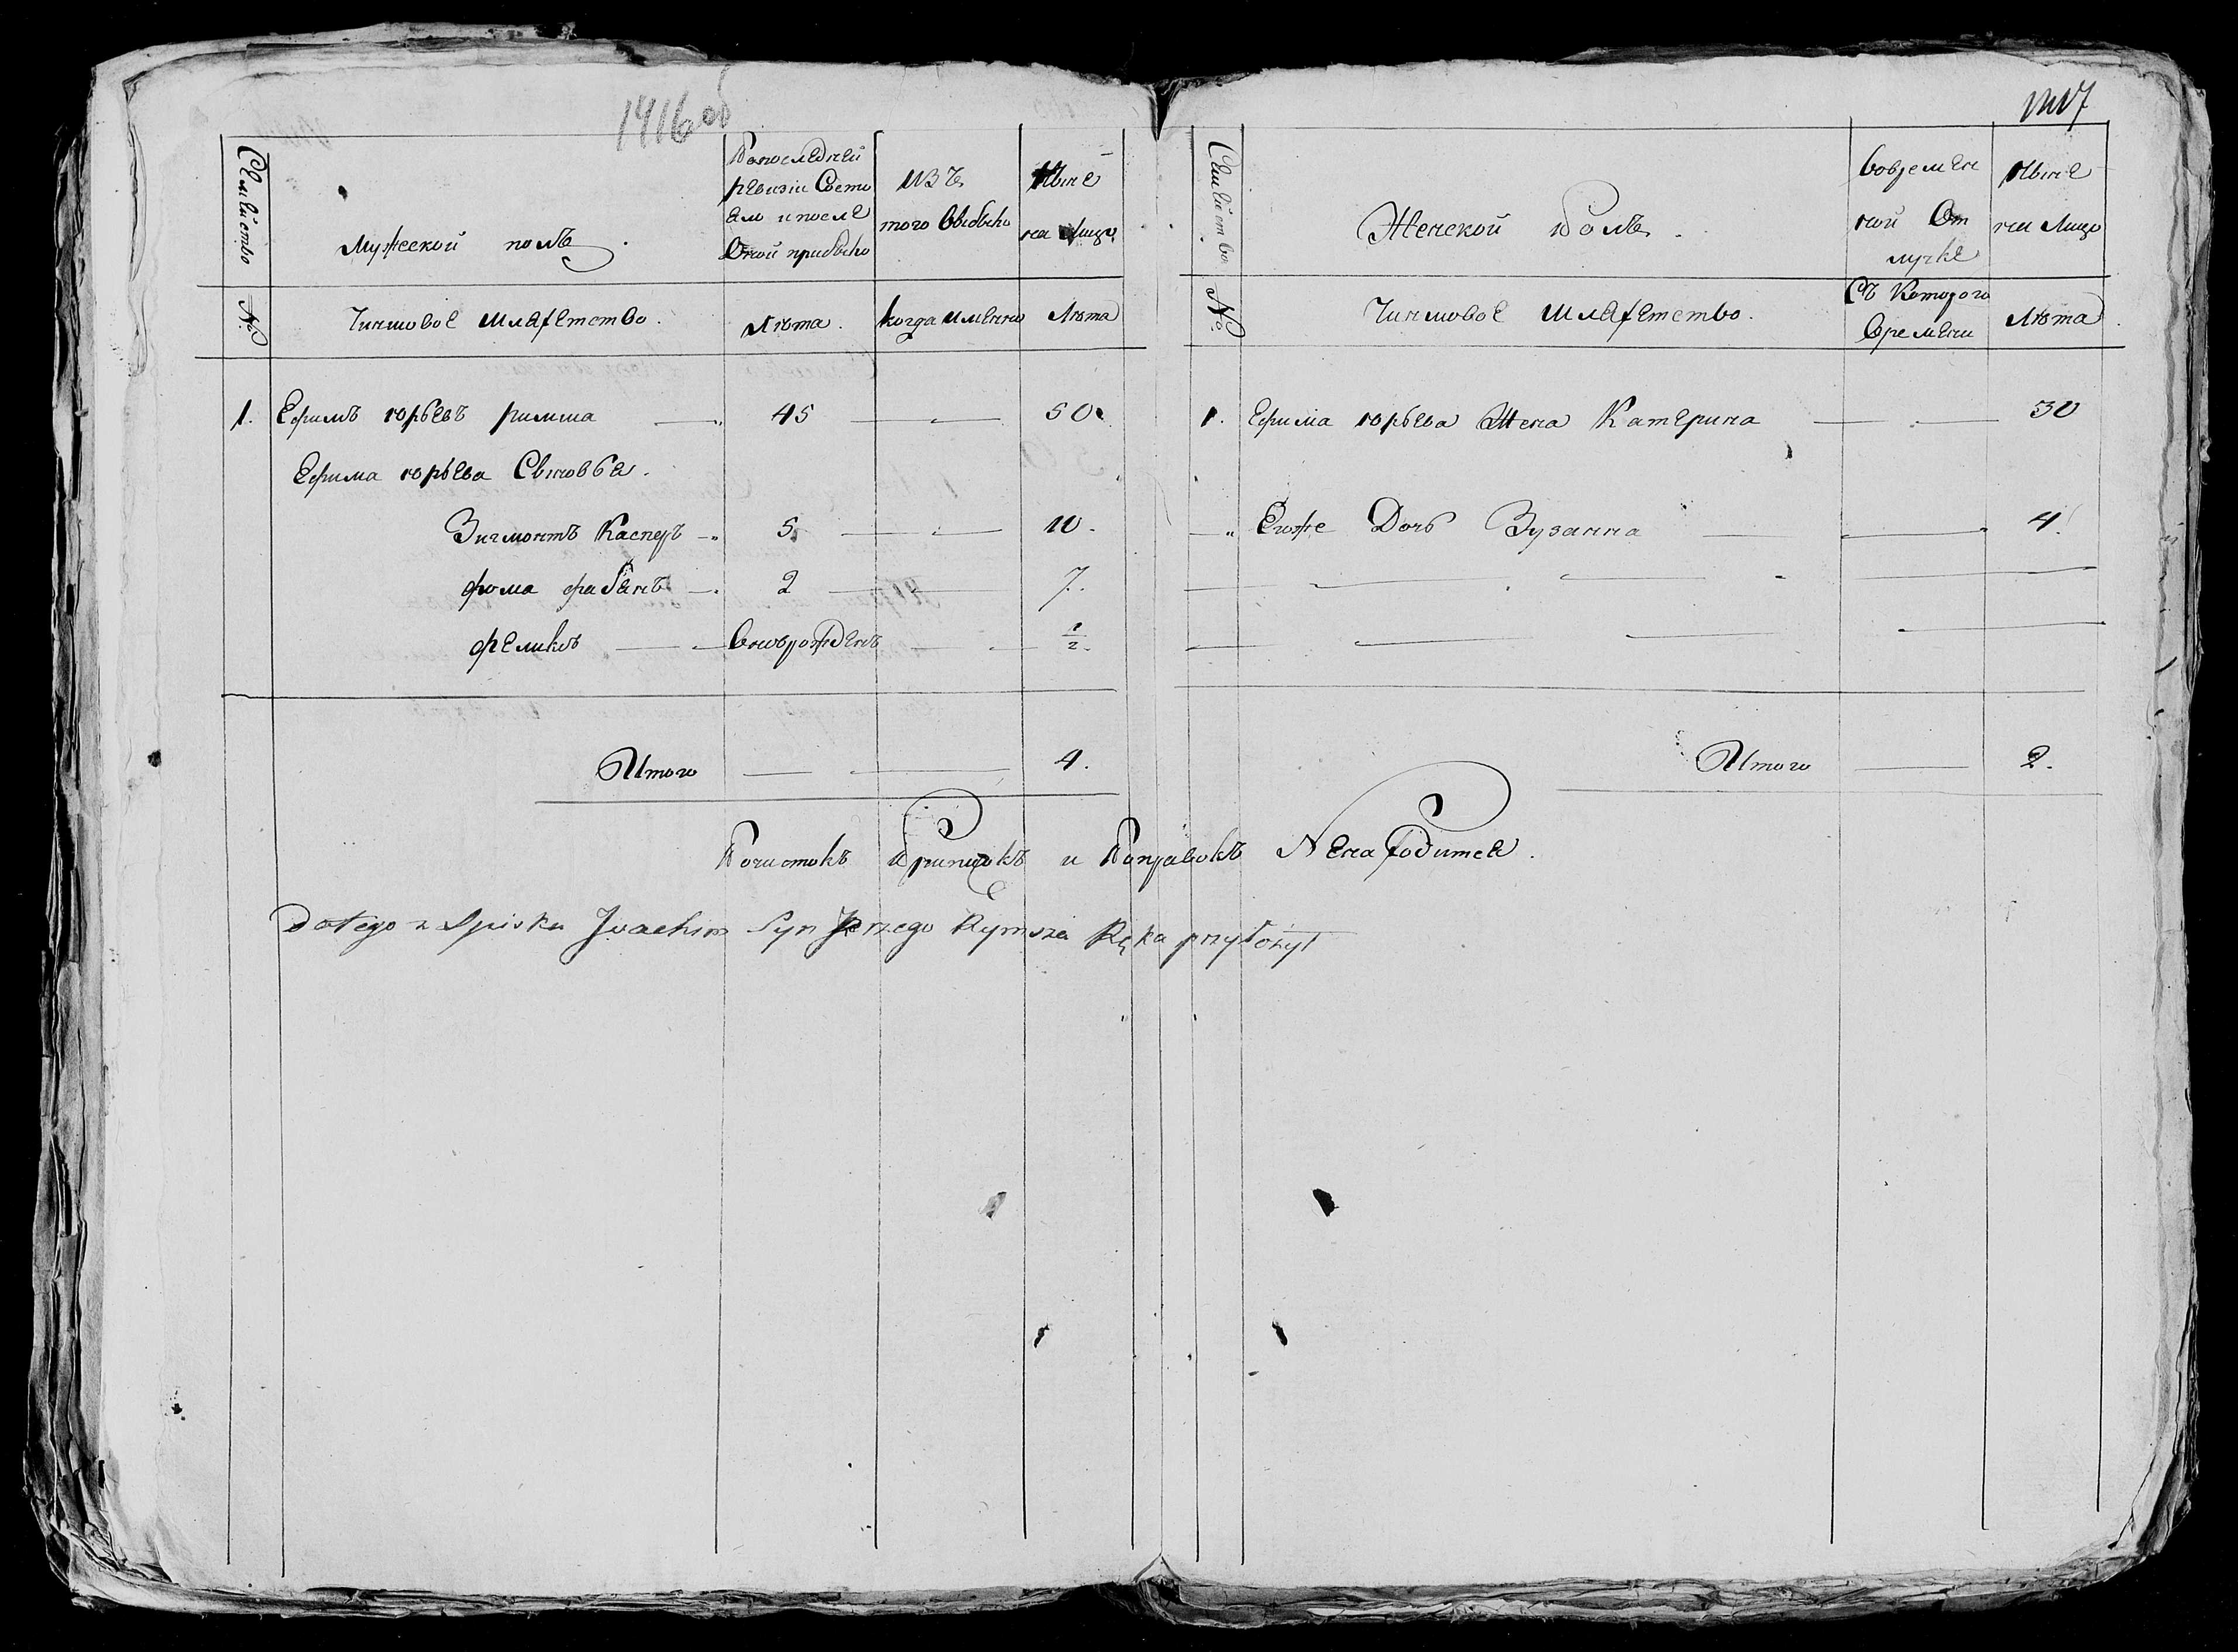 1416 об
Семейство
мужеской полъ
Попоследней
ревизіи Состо
яло и после
Оной прибыло
изъ
того Выбыло
Ныне
на Лицо
№
Чиншовое шляхетство.
Лѣта.
когда имянно
Лѣта
1. Ефимъ юрьевъ римша 45 50.
Ефима юрьева Сыновья.
Зигмонтъ Касперъ 5. 10.
фома фабянъ 2 7.
феликсъ Вноврожденъ 1/2.
Итого 4.
1417
Семейство
Женской Полъ.
вовремян
ной От
лучке
Ныне
на Лицо
№
Чиншовое шляхетство.
Съ Которого
Времени
Лѣта
1. Ефима юрьева Жена Катерина 30
Егоже Дочь Зузанна 4.
Итого 2.
Почистокъ Приписокъ и Поправокъ Ненаходится.
Do tego z Spisku Joachim Syn Jerzego Rymsza Ręka przyłożył